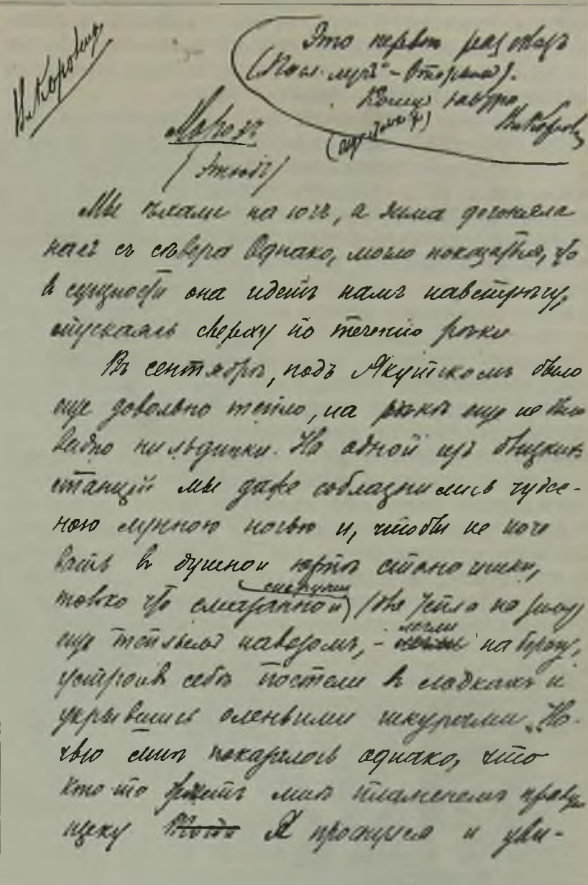 Вл. Короленко
Это первый разсказ
("Посл. лучъ" – второй).
Конец завтра
Вл. Короленко
Морозъ
/Этюдъ/
Мы ѣхали на югъ, а зима догоняла
насъ съ сѣвера Однако, могло показаться, что
въ сущности она идетъ намъ навстрѣчу,
спускаясь сверху по теченію рѣки
Въ сентябрѣ, подъ Якутскомъ было
еще довольно тепло, на рѣкѣ еще не было
видно ни льдинки. На одной изъ близкихъ
станцій мы даже соблазнились чудес-
ною лунною ночью и, чтобы не ноче
вать въ душной юртѣ станочника,
снаружи
только что смазанной (для тепла на зиму)
еще теплымъ навозомъ, –
легли
на берегу,
устроивъ себѣ постели въ лодкахъ и
укрывшись оленьими шкурами. Но-
чью мнѣ показалось однако, что
кто-то жжетъ мнѣ пламенемъ правую
щеку Я проснулся и уви-